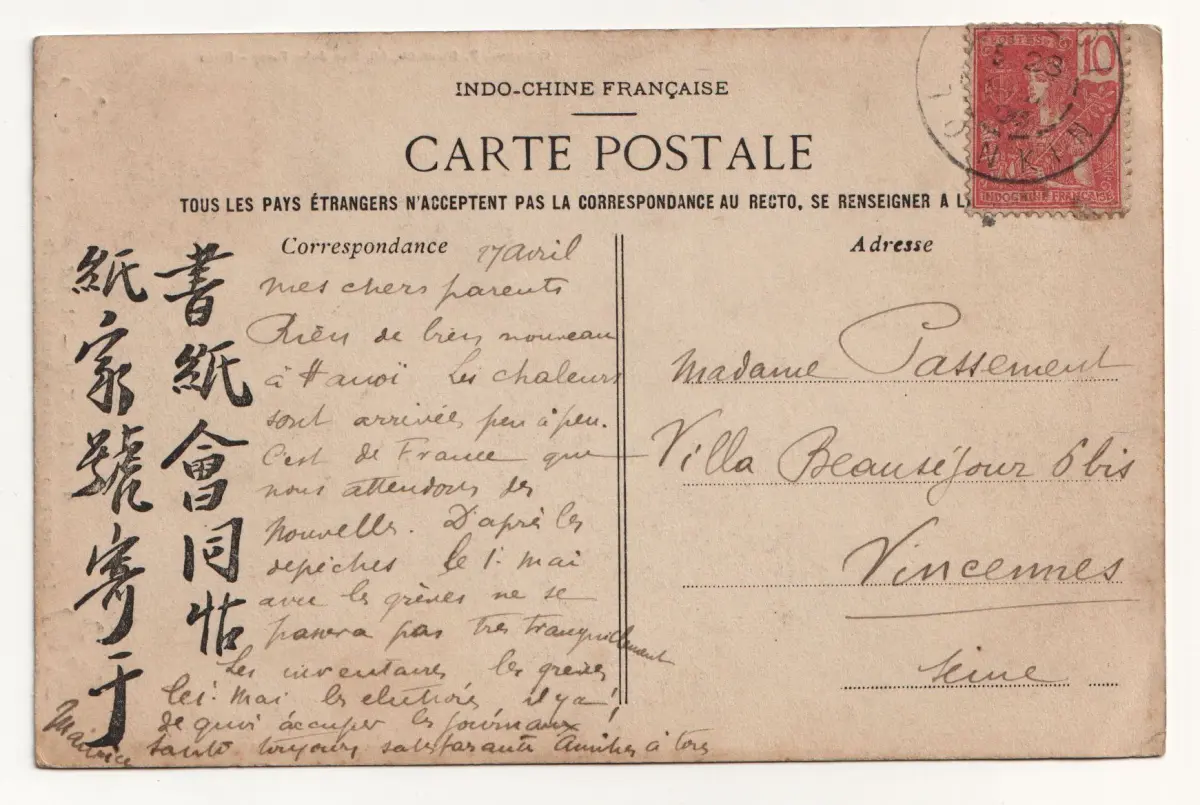 INDO-CHINE FRANÇAISE
CARTE POSTALE
TOUS LES PAYS ÉTRANGERS N'ACCEPTENT PAS LA CORRESPONDANCE AU RECTO, SE RENSEIGNER A L
POSTES
10
INDOCHINE FRANÇAISE
TONKIN
書紙會同帖
紙家號寄于
Correspondance
17 avril
mes chers parents
Rien de bien nouveau
à Hanoï Les chaleurs
sont arrivées peu à peu.
C'est de France que
nous attendons des
Nouvelles. D'après les
depêches le 1. mai
avec les grèves ne se
passera pas très tranquillement
Les inventaires les greves
le 1. mai les elections il y a
de quoi occuper les journaux !
Santé toujours satisfaisante Amitiés à tous
Maurice
Adresse
Madame Passement
Villa Beauséjour 6 bis
Vincennes
Seine